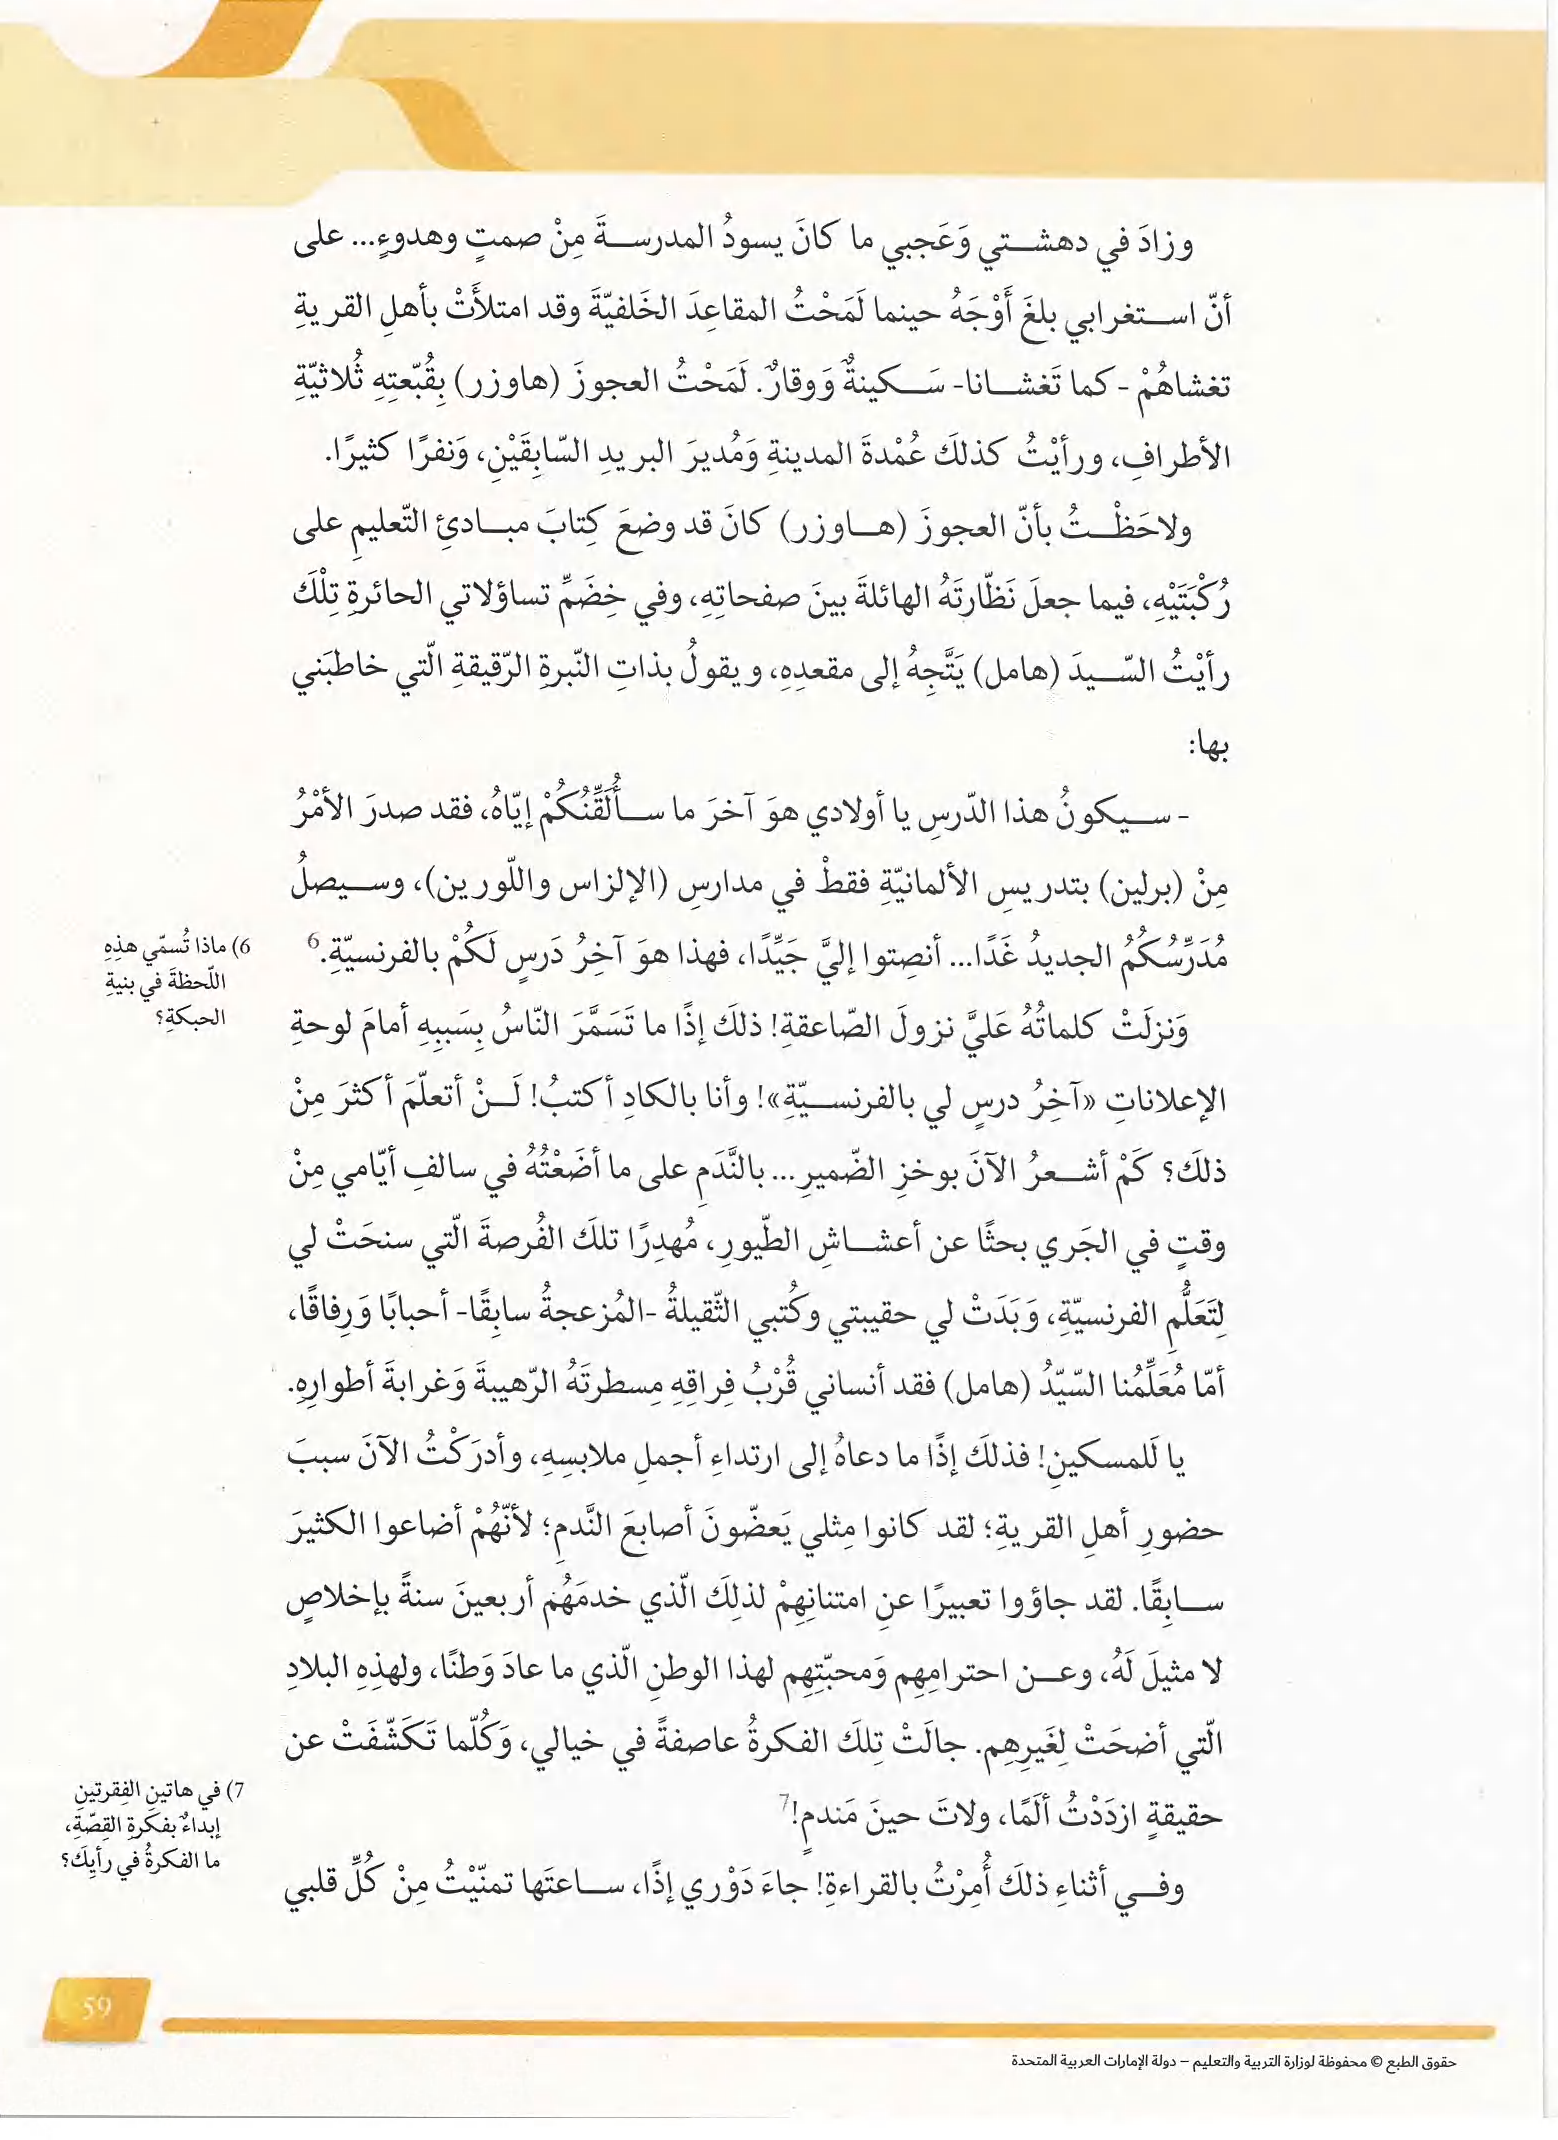 وزادَ في دهشتي وَعَجبي ما كانَ يسودُ المدرسةَ مِنْ صمتٍ وهدوءٍ... على
أنّ استغرابي بلغَ أَوْجَهُ حينما لَمَحْتُ المقاعِدَ الخَلفيّةَ وقد امتلأَتْ بأهلِ القريةِ
تغشاهُمْ - كما تَغشانا- سَكينةٌ وَوقارٌ. لَمَحْتُ العجوزَ (هاوزر) بِقُبّعتِهِ ثُلاثيّةِ
الأطرافِ، ورأيْتُ كذلكَ عُمْدةَ المدينةِ وَمُديرَ البريدِ السّابِقَيْنِ، وَنفرًا كثيرًا.
ولاحَظْتُ بأنّ العجوزَ (هاوزر) كانَ قد وضعَ كِتابَ مبادئِ التّعليمِ على
رُكْبَتَيْهِ، فيما جعلَ نَظّارتَهُ الهائلةَ بينَ صفحاتِهِ، وفي خِضَمِّ تساؤلاتي الحائرةِ تِلْكَ
رأيْتُ السّيدَ (هامل) يَتَّجِهُ إلى مقعدِهِ، ويقولُ بذاتِ النّبرةِ الرّقيقةِ الّتي خاطبَني
بها:
- سيكونُ هذا الدّرسِ يا أولادي هوَ آخرَ ما سأُلَقِّنُكُمْ إيّاهُ، فقد صدرَ الأمْرُ
مِنْ (برلين) بتدريسِ الألمانيّةِ فقطْ في مدارسِ (الإلزاس واللّورين)، وسيصلُ
مُدَرِّسُكُمُ الجديدُ غَدًا... أنصِتوا إليَّ جَيِّدًا، فهذا هوَ آخِرُ دَرسٍ لَكُمْ بالفرنسيّةِ.6
6) ماذا تُسمّي هذِهِ
اللّحظةَ في بنيةِ
الحبكةِ؟
وَنزلَتْ كلماتُهُ عَليَّ نزولَ الصّاعقةِ! ذلكَ إذًا ما تَسَمَّرَ النّاسُ بِسَببِهِ أمامَ لوحةِ
الإعلاناتِ «آخِرُ درسٍ لي بالفرنسيّةِ»! وأنا بالكادِ أكتبُ! لَنْ أتعلّمَ أكثرَ مِنْ
ذلكَ؟ كَمْ أشعرُ الآنَ بوخزِ الضّميرِ... بالنَّدَمِ على ما أضَعْتُهُ في سالفِ أيّامي مِنْ
وقتٍ في الجَري بحثًا عن أعشاشِ الطّيورِ، مُهدِرًا تلكَ الفُرصةَ الّتي سنحَتْ لي
لِتَعَلُّمِ الفرنسيّةِ، وَبَدَتْ لي حقيبتي وكُتبي الثّقيلةُ -المُزعجةُ سابِقًا- أحبابًا وَرِفاقًا،
أمّا مُعَلِّمُنا السّيّدُ (هامل) فقد أنساني قُرْبُ فِراقِهِ مِسطرتَهُ الرّهيبةَ وَغرابةَ أطوارِهِ.
يا لَلمسكينِ! فذلكَ إذًا ما دعاهُ إلى ارتداءِ أجملِ ملابسِهِ، وأدرَكْتُ الآنَ سببَ
حضورِ أهلِ القريةِ؛ لقد كانوا مِثلي يَعضّونَ أصابعَ النَّدمِ؛ لأنّهُمْ أضاعوا الكثيرَ
سابِقًا. لقد جاؤوا تعبيرًا عنِ امتنانِهِمْ لذلِكَ الّذي خدمَهُم أربعينَ سنةً بإخلاصٍ
لا مثيلَ لَهُ، وعن احترامِهِم وَمحبّتِهِم لهذا الوطنِ الّذي ما عادَ وَطنًا، ولهذِهِ البلادِ
الّتي أضحَتْ لِغَيرِهِم. جالَتْ تِلكَ الفكرةُ عاصفةً في خيالي، وَكُلّما تَكَشّفَتْ عن
حقيقةٍ ازدَدْتُ ألَمًا، ولاتَ حينَ مَندمٍ!7
7) في هاتينِ الفِقرتينِ
إبداءٌ بفكرةِ القِصّةِ،
ما الفكرةُ في رأيِكَ؟
وفي أثناءِ ذلكَ أُمِرْتُ بالقراءةِ! جاءَ دَوْري إذًا، ساعتَها تمنّيْتُ مِنْ كُلِّ قلبي
59
حقوق الطبع © محفوظة لوزارة التربية والتعليم – دولة الإمارات العربية المتحدة